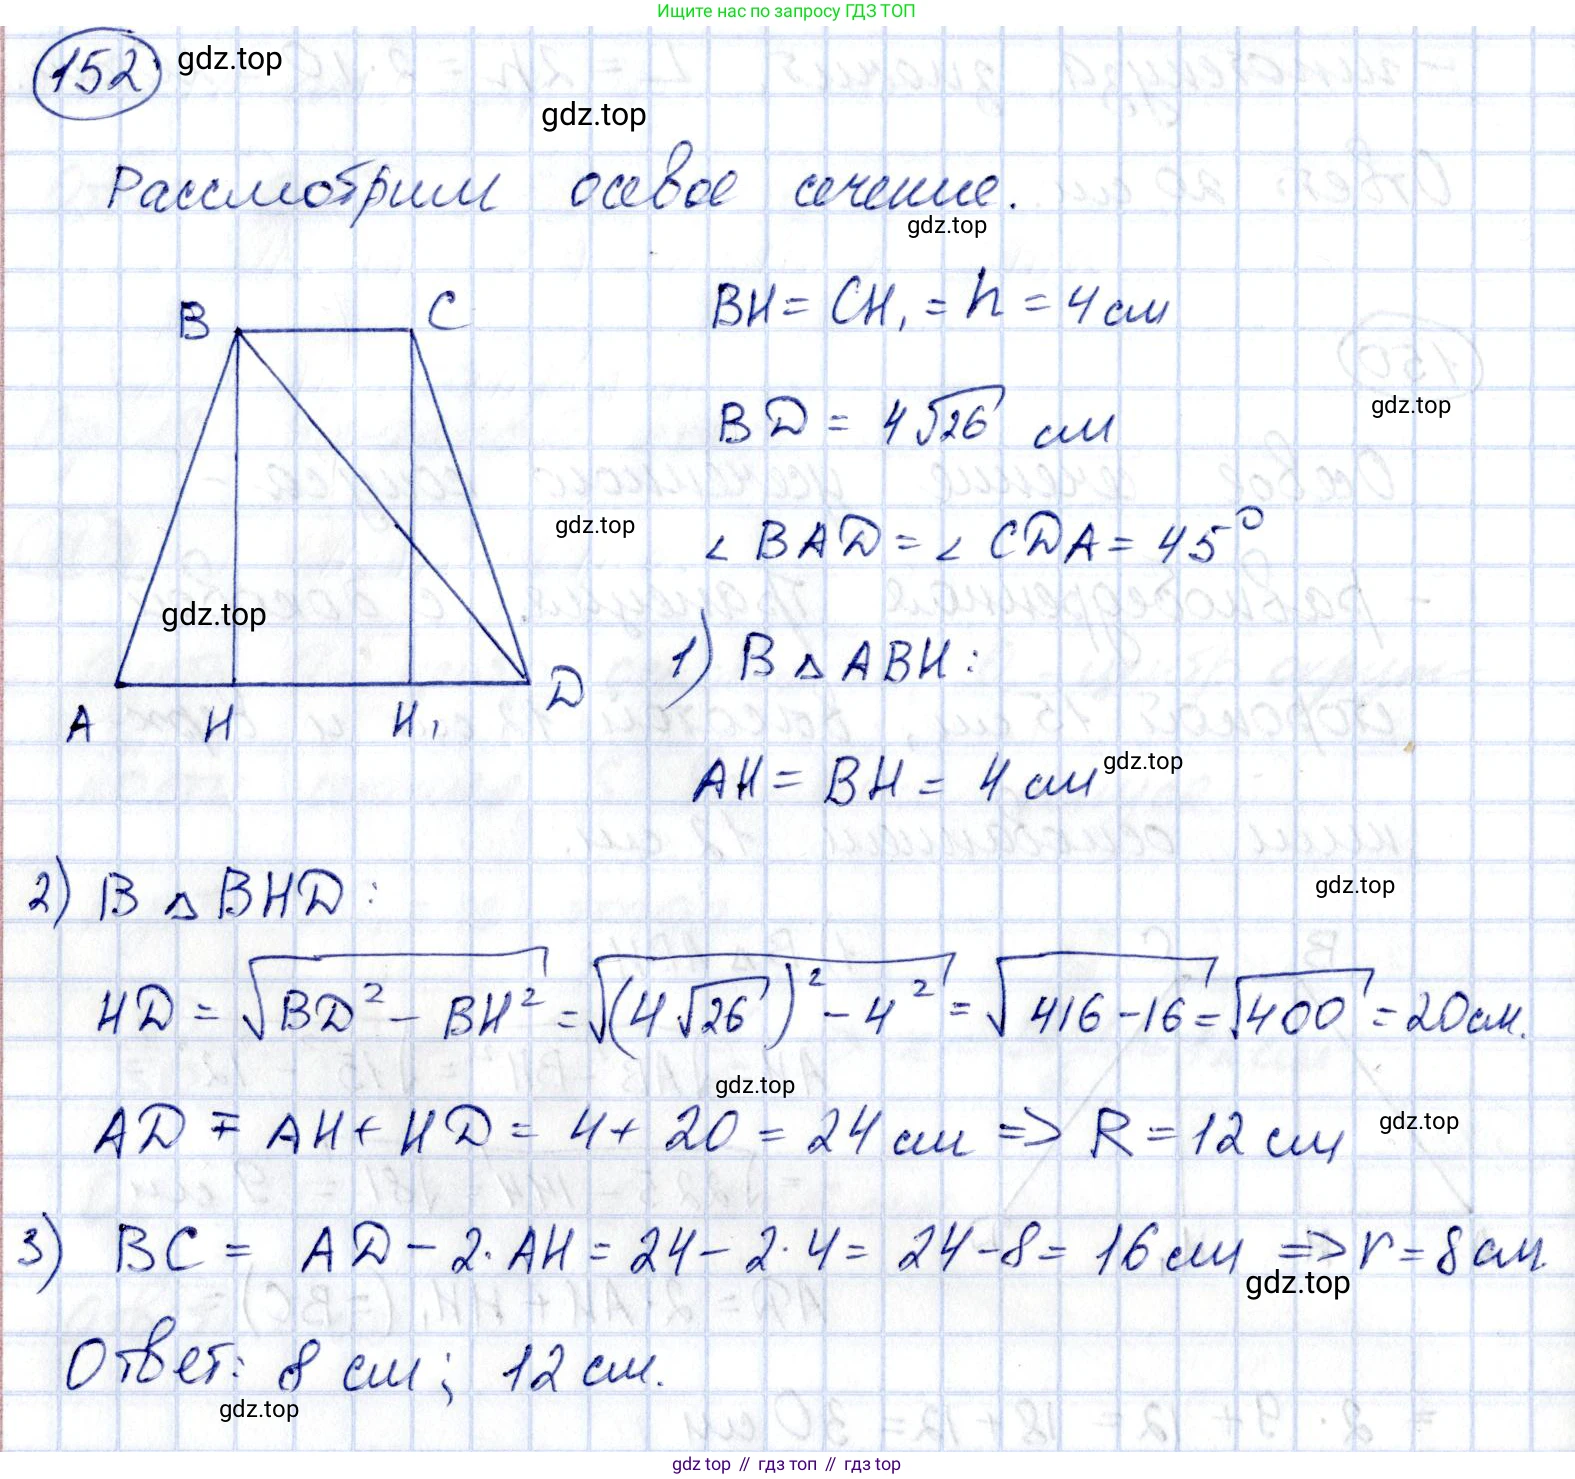 Ищите нас по запросу ГДЗ ТОП
152 gdz.top
gdz.top
Рассмотрим осевое сечение.
gdz.top
B C
BH = CH₁ = h = 4 см
BD = 4√26 см
gdz.top
gdz.top
∠ BAD = ∠ CDA = 45°
gdz.top
1) В △ ABH:
A H H₁ D
AH = BH = 4 см
gdz.top
2) В △ BHD:
gdz.top
HD = √(BD² − BH²) = √((4√26)² − 4²) = √(416 − 16) = √400 = 20 см.
gdz.top
AD = AH + HD = 4 + 20 = 24 см => R = 12 см
gdz.top
3) BC = AD − 2·AH = 24 − 2·4 = 24 − 8 = 16 см => r = 8 см
gdz.top
Ответ: 8 см; 12 см.
gdz.top
gdz top // гдз топ // гдз top